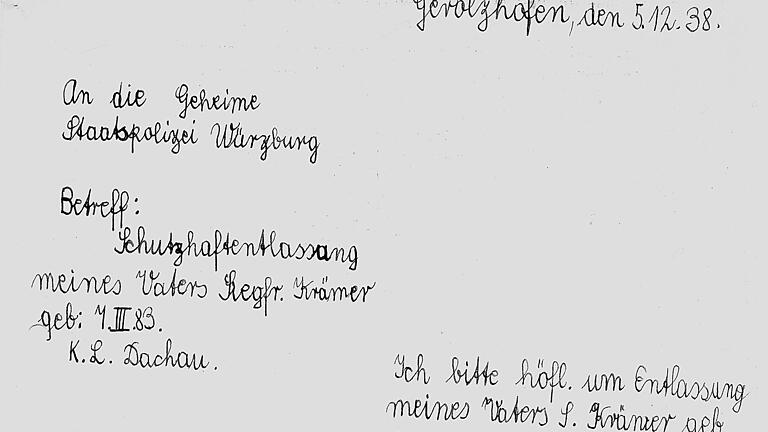 Gerolzhofen, den 5.12.38.
An die Geheime
Staatspolizei Würzburg
Betreff:
Schutzhaftentlassung
meines Vaters Siegfr. Krämer
geb: 7.III.83.
K.L. Dachau.
Ich bitte höfl. um Entlassung
meines Vaters S. Krämer geb